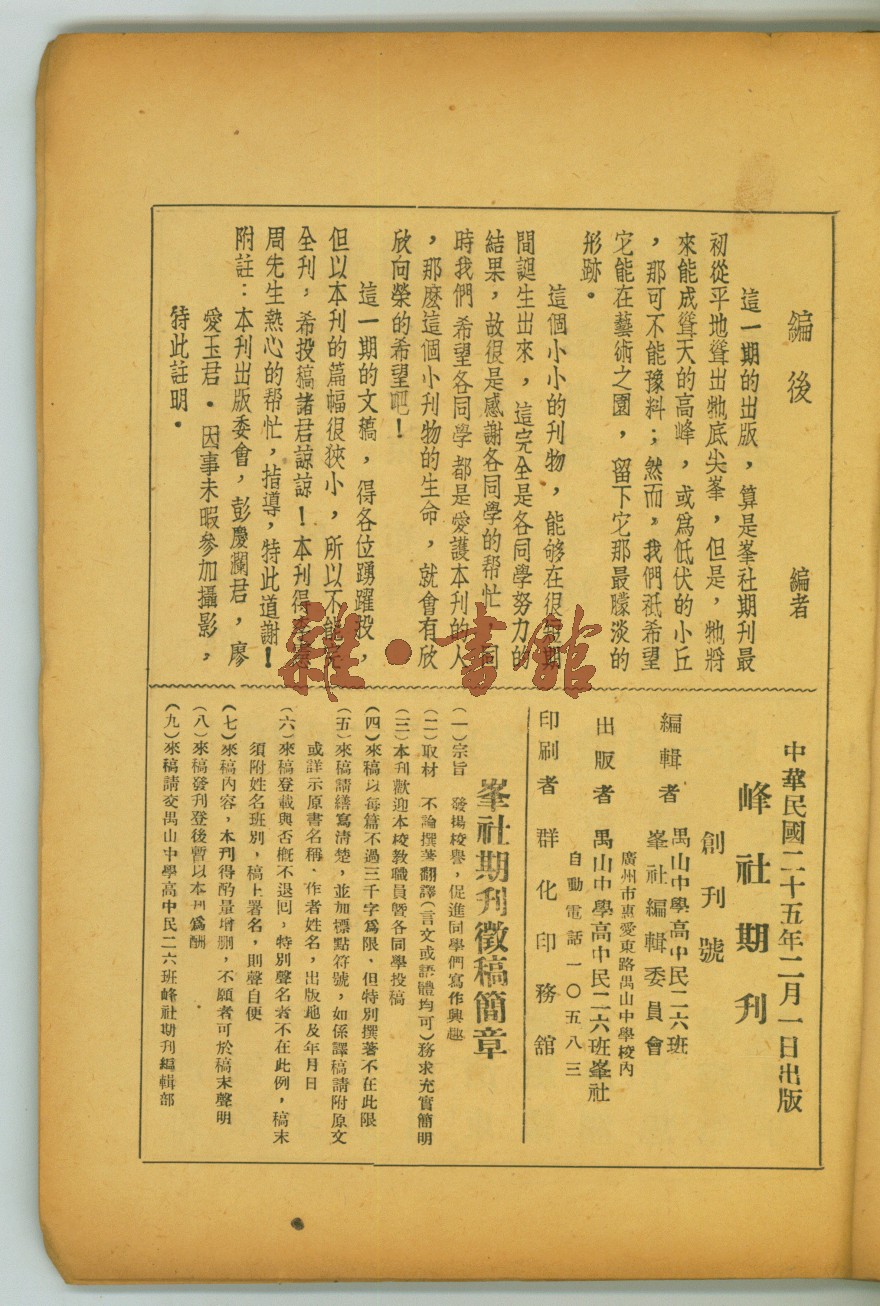 編後
編者
這一期的出版，算是峯社期刊最
初從平地聳出牠底尖峯，但是，牠將
來能成聳天的高峰，或爲低伏的小丘
，那可不能豫料；然而，我們祇希望
它能在藝術之園，留下它那最朦淡的
形跡。
這個小小的刊物，能够在很短期
間誕生出來，這完全是各同學努力的
結果，故很是感謝各同學的帮忙，同
時我們希望各同學都是愛護本刊的人
，那麽這個小刊物的生命，就會有欣
欣向榮的希望吧！
這一期的文稿，得各位踴躍投，
但以本刊的篇幅很狹小，所以不能完
全刊，希投稿諸君諒諒！本刊得李
周先生熱心的帮忙，指導，特此道謝！
附註：本刊出版委會，彭慶瀾君，廖
愛玉君。因事未暇參加攝影，
特此註明。
中華民國二十五年二月一日出版
峰社期刊
創刊號
編輯者 禺山中學高中民二六班
峯社編輯委員會
廣州市惠愛東路禺山中學校內
出版者 禺山中學高中民二六班峯社
自動電話一〇五八三
印刷者 群化印務舘
峯社期刊徵稿簡章
(一)宗旨 發揚校譽，促進同學們寫作興趣
(二)取材 不論撰著翻譯(言文或語體均可)務求充實簡明
(三)本刊歡迎本校教職員曁各同學投稿
(四)來稿以每篇不過三千字爲限，但特別撰著不在此限
(五)來稿請繕寫清楚，並加標點符號，如係譯稿請附原文
或詳示原書名稱、作者姓名，出版地及年月日
(六)來稿登載與否概不退囘，特別聲名者不在此例，稿末
須附姓名班別，稿上署名，則聲自便
(七)來稿内容，本刋得酌量增删，不願者可於稿末聲明
(八)來稿發刋登後暫以本刋爲酬
(九)來稿請交禺山中學高中民二六班峰社期刊編輯部
雜·書館